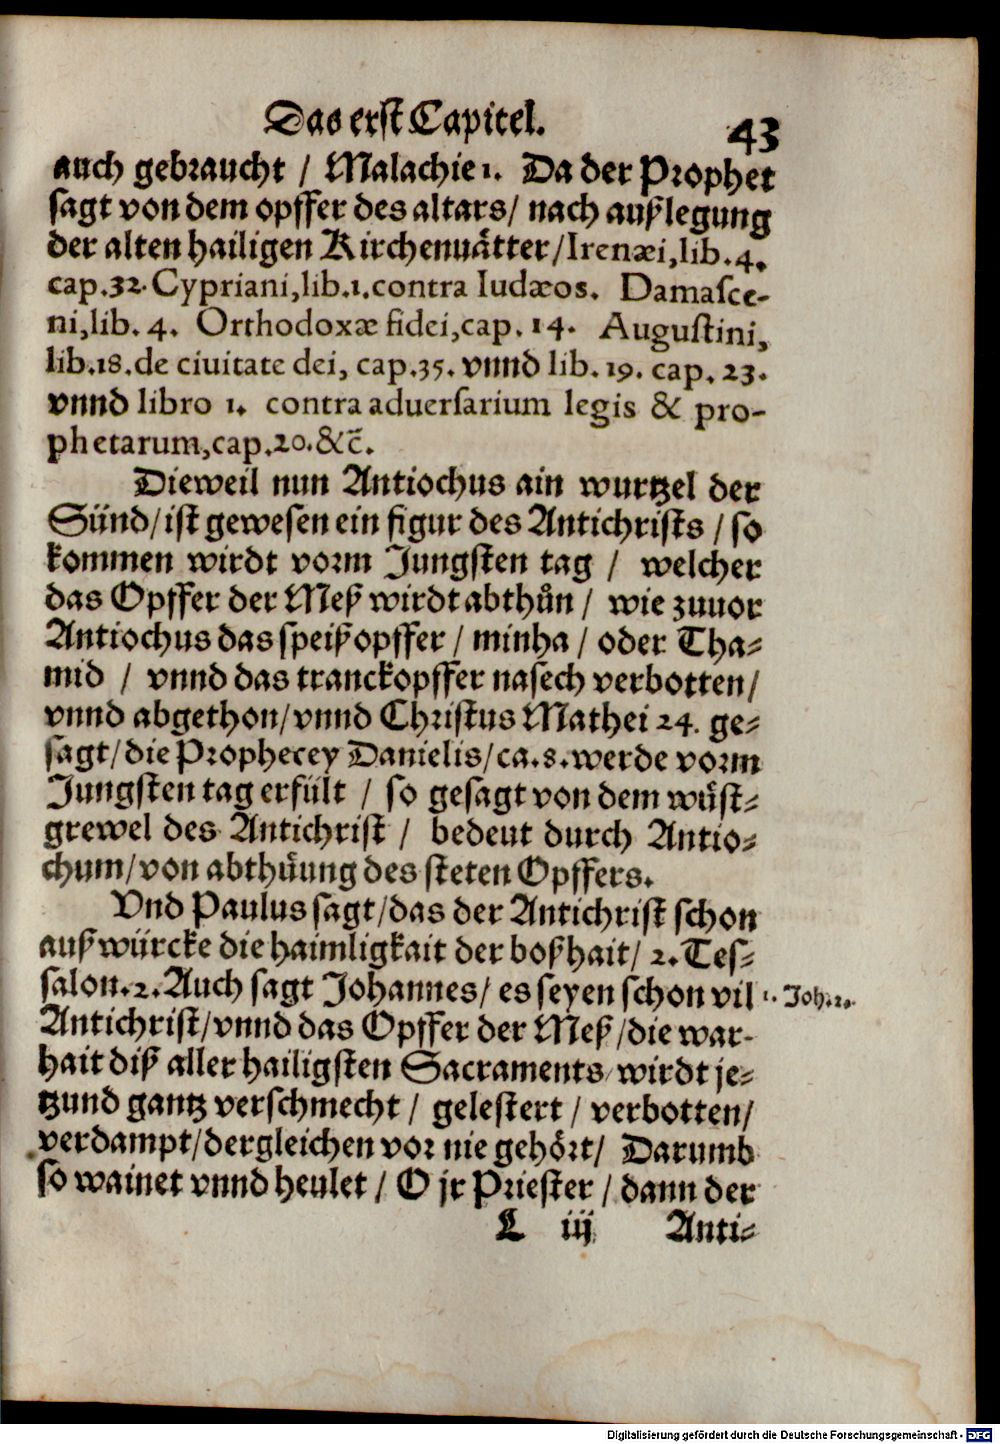 Das erst Capitel.
43
auch gebraucht / Malachie 1. Da der Prophet
sagt von dem opffer des altars / nach außlegung
der alten hailigen Kirchenuätter / Irenæi, lib. 4.
cap. 32. Cypriani, lib. 1. contra Iudæos. Damasce-
ni, lib. 4. Orthodoxæ fidei, cap. 14. Augustini,
lib. 18. de ciuitate dei, cap. 35. vnnd lib. 19. cap. 23.
vnnd libro 1. contra aduersarium legis & pro-
phetarum, cap. 20. &c̄.
Dieweil nun Antiochus ain wurtzel der
Sünd / ist gewesen ein figur des Antichrists / so
kommen wirdt vorm Jungsten tag / welcher
das Opffer der Meß wirdt abthůn / wie zuuor
Antiochus das speißopffer / minha / oder Tha-
mid / vnnd das tranckopffer nasech verbotten /
vnnd abgethon / vnnd Christus Mathei 24. ge-
sagt / die Prophecey Danielis / ca. 8. werde vorm
Jungsten tag erfült / so gesagt von dem wüst-
grewel des Antichrist / bedeut durch Antio-
chum / von abthůung des steten Opffers.
Vnd Paulus sagt / das der Antichrist schon
außwürcke die haimligkait der boßhait / 2. Tes-
salon. 2. Auch sagt Johannes / es seyen schon vil
1. Joh. 2.
Antichrist / vnnd das Opffer der Meß / die war-
hait diß aller hailigsten Sacraments / wirdt je-
tzund gantz verschmecht / gelestert / verbotten /
verdampt / dergleichen vor nie gehört / Darumb
so wainet vnnd heulet / O jr Priester / dann der
L iij
Anti-
Digitalisierung gefördert durch die Deutsche Forschungsgemeinschaft - DFG